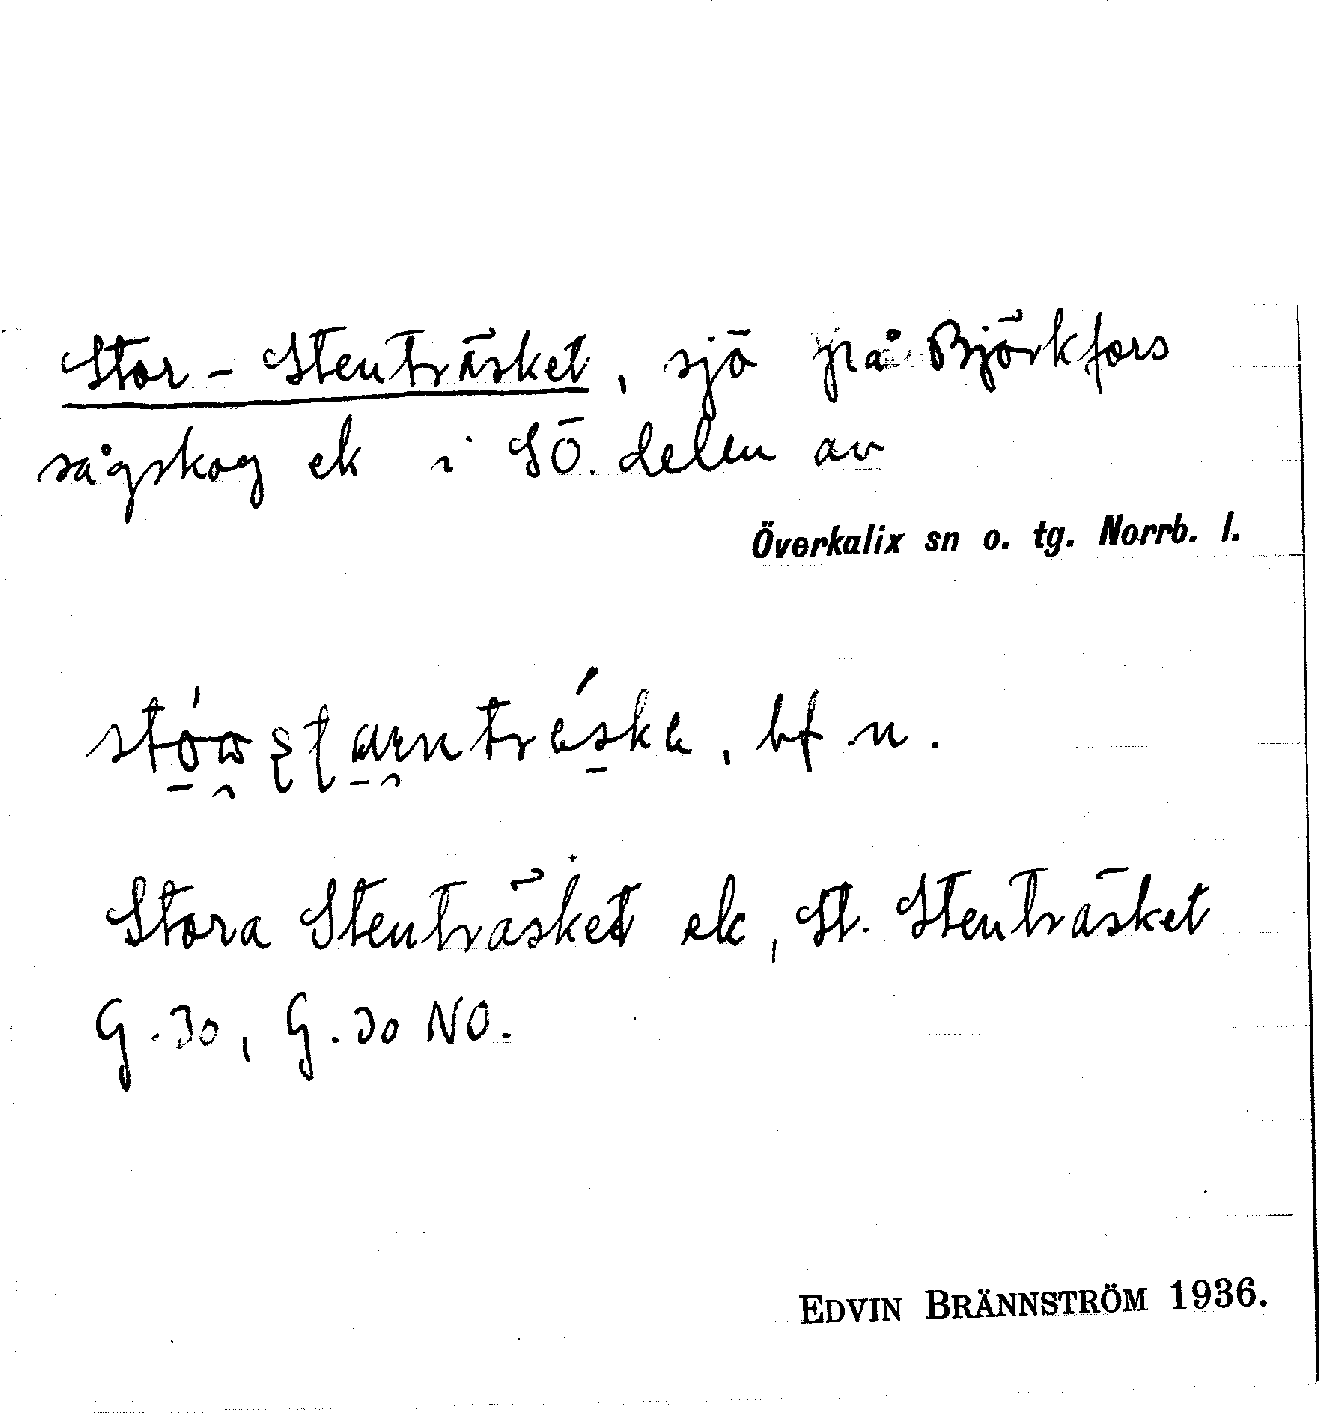 Stor-Stenträsket, sjö på Björkfors
sågskog ek i SÖ. delen av
Överkalix sn o. tg. Norrb. l.
bf .n.
Stora Stenträsket ek, St. Stenträsket
G.30, G.30 NO.
EDVIN BRÄNNSTRÖM 1936.